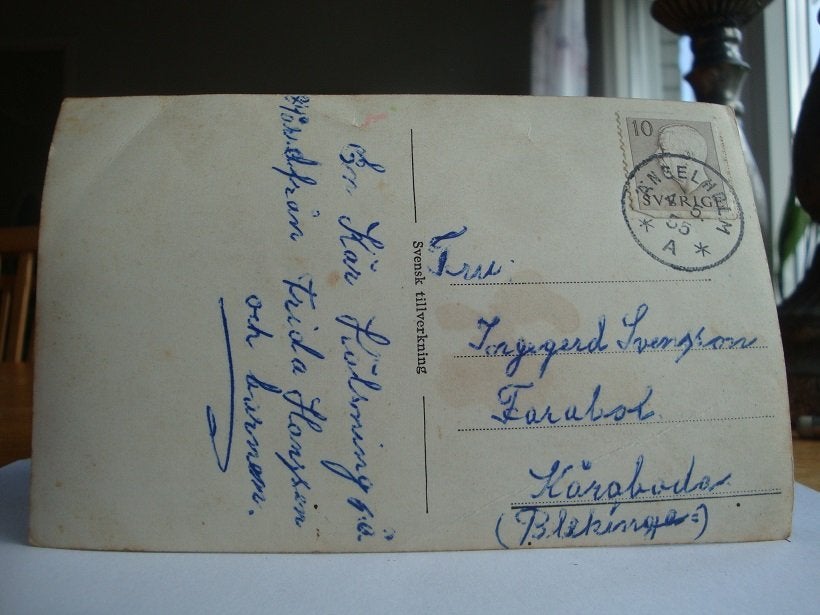 En Kär Hälsning på
från Frida Hanssen
och barnen.
Svensk tillverkning
10
SVERIGE
ÄNGELHOLM
A
Fru.
Ingegerd Svensson
Farabol
Käraboda
(Blekinge)